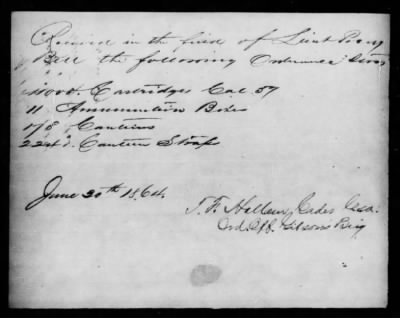 Received in the field of Lieut
Bell the following Ordnance Stores
11000. Cartridges Cal 57
11 Ammunition Boxes
178 Canteens
224 d. Canteen Straps
June 20th 1864.
Cadet CSA.
Ord. Off. Gibsons Brig